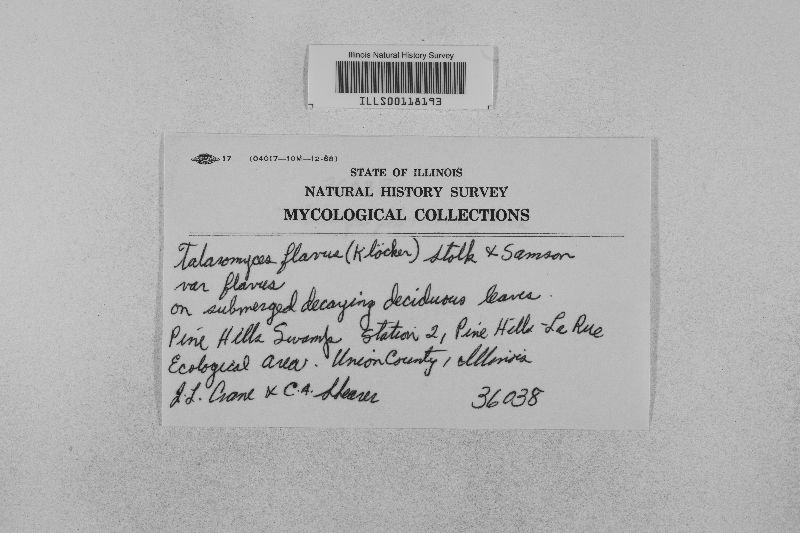 Illinois Natural History Survey
ILLS00118193
17 (04017—10M—12-68)
STATE OF ILLINOIS
NATURAL HISTORY SURVEY
MYCOLOGICAL COLLECTIONS
Talaromyces flavus (Klöcker) Stolk & Samson
var flavus
on submerged decaying deciduous leaves.
Pine Hills Swamp Station 2, Pine Hills-La Rue
Ecological area. Union County, Illinois
J.L. Crane & C.A. Shearer 36038